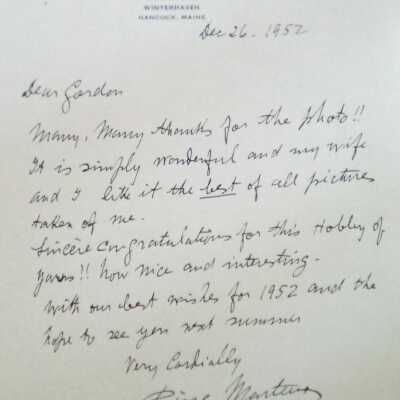 WINTERHAVEN
HANCOCK, MAINE
Dec 26. 1952
Dear Gordon
Many, Many thanks for the photo!!
It is simply wonderful and my wife
and I like it the best of all pictures
taken of me.
Sincère congratulations for this Hobby of
yours!! how nice and interesting.
with our best wishes for 1952 and the
hope to see you next summer
Very Cordially